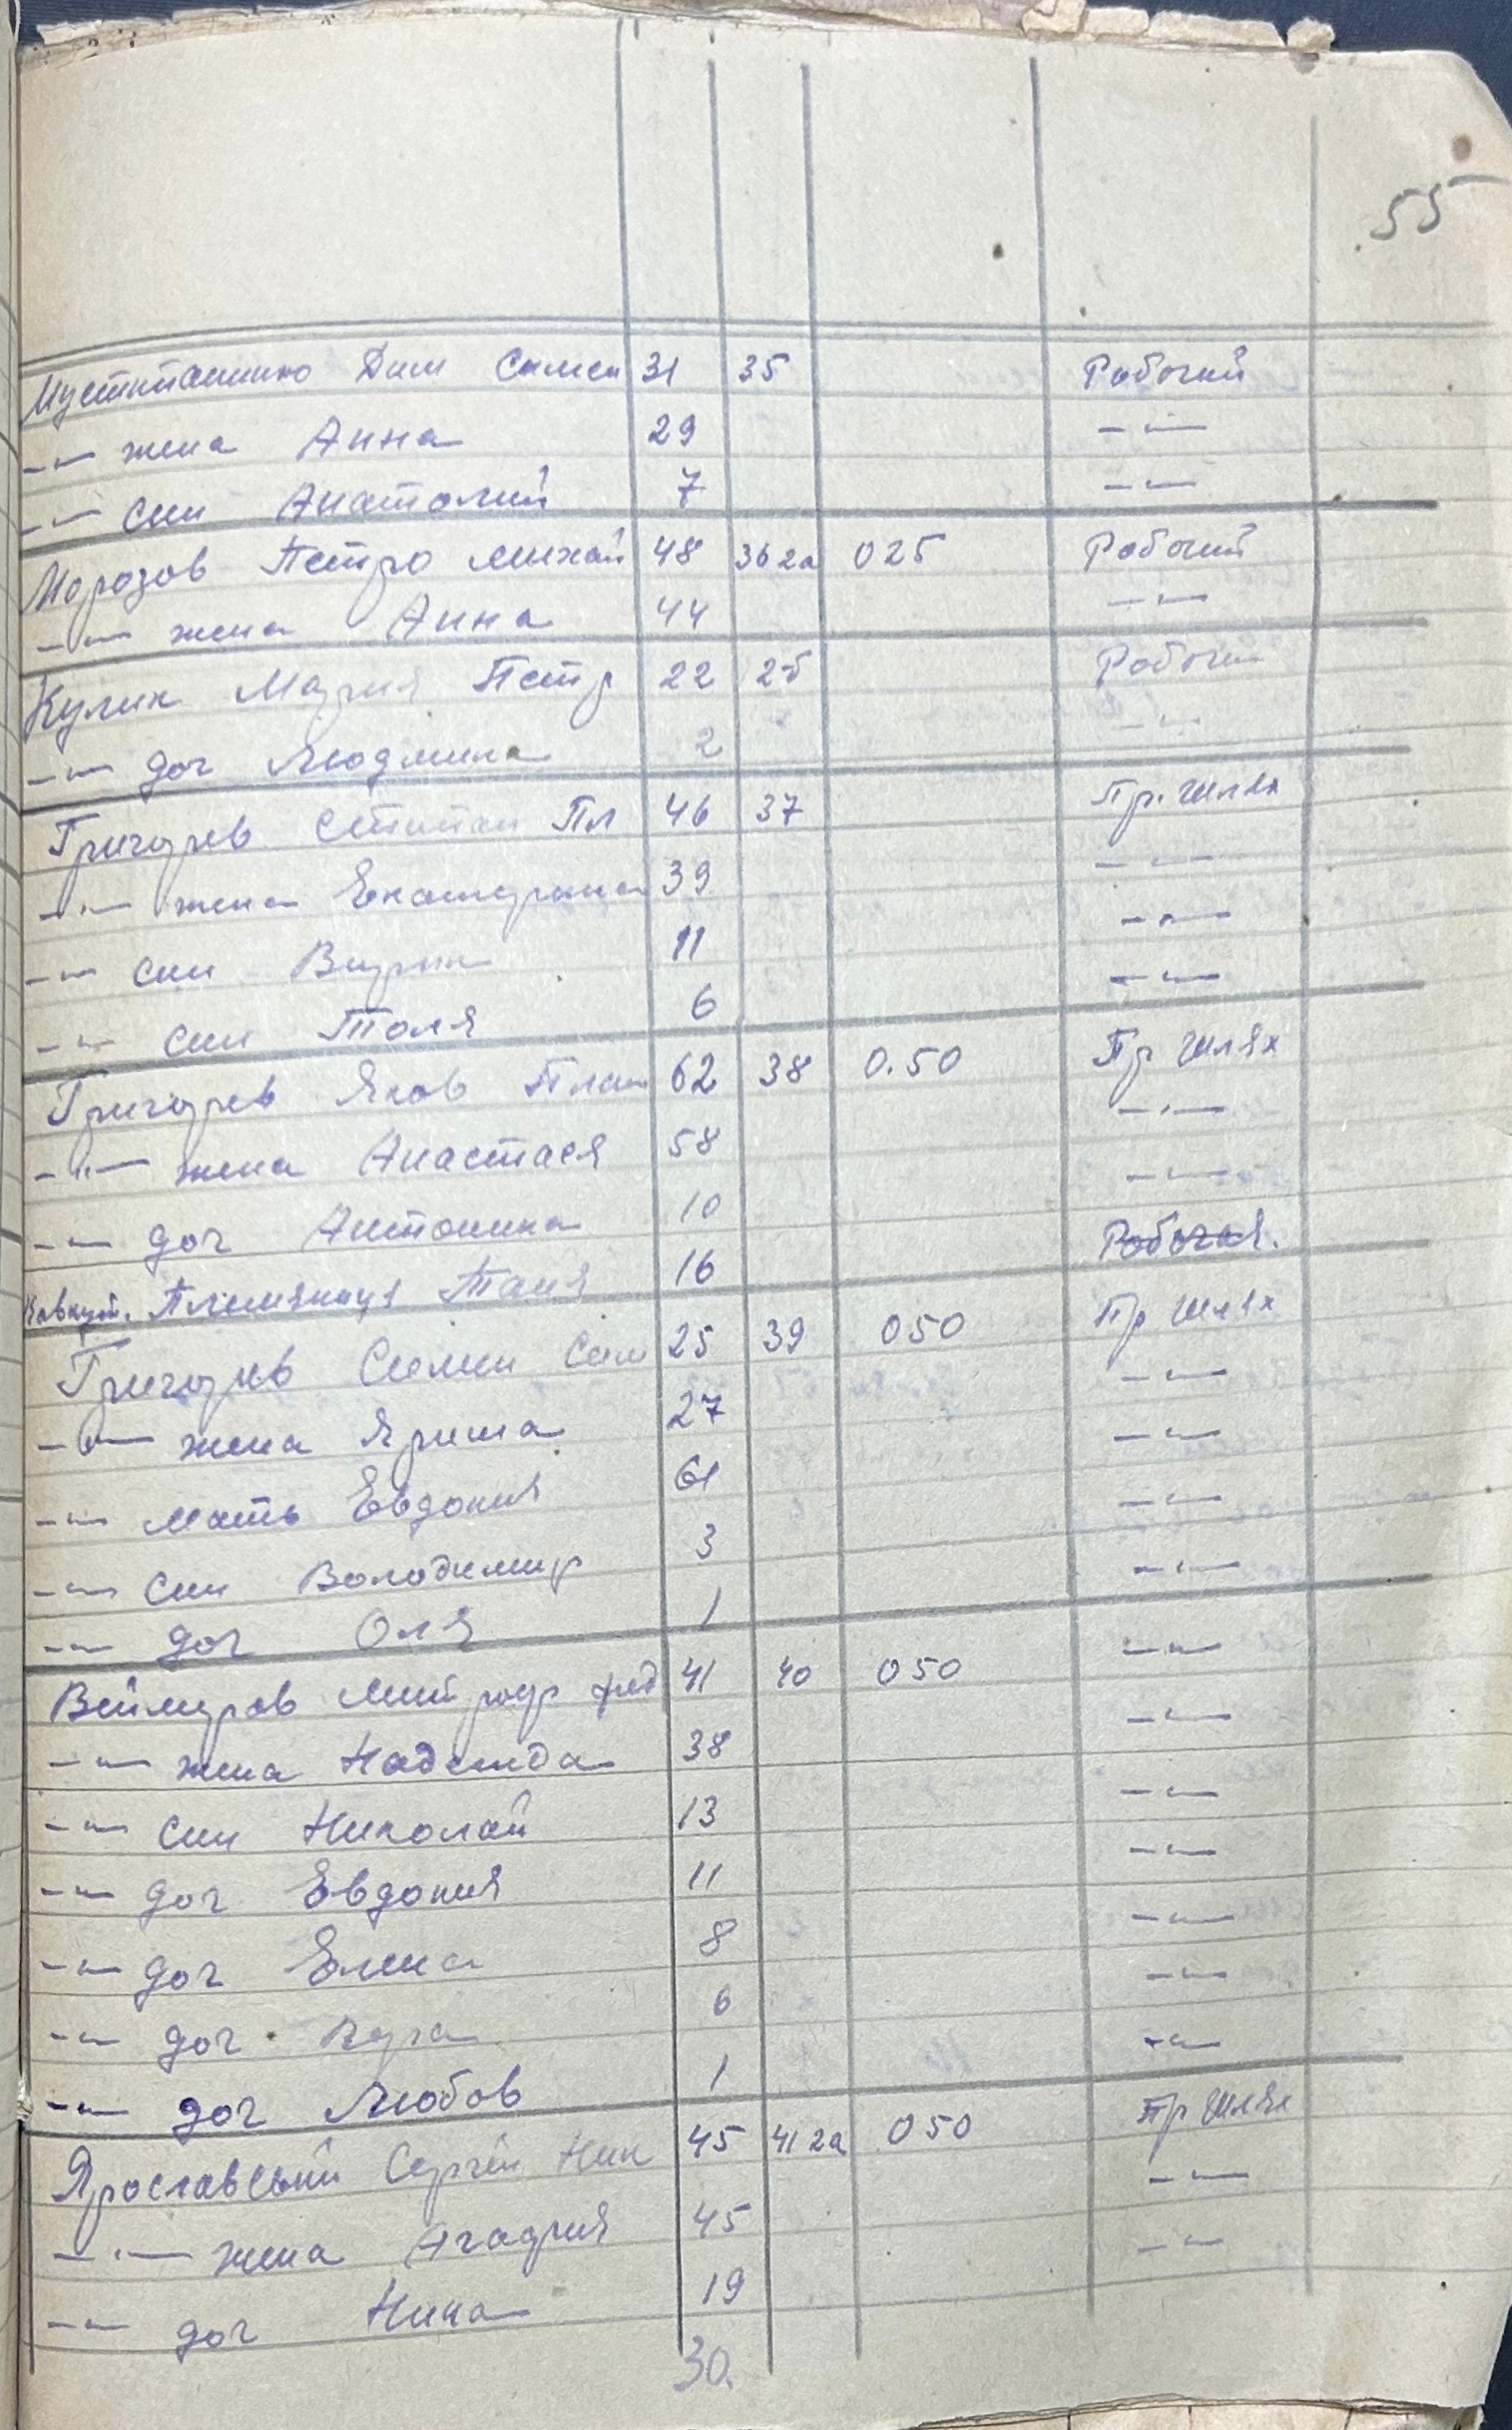 55
Дим Симен 31 35 Робочий
-"- жена Анна 29 -"-
-"- син Анатолий 7 -"-
Морозов Петро Михай 48 36 2а 025 Робочий
-"- жена Анна 44 -"-
Кулик Мария Петр 22 2-б Робочи
-"- доч Людмила 2 -"-
Григорев Степан Пл 46 37 Пр. Шлях
-"- жена Екатерина 39 -"-
-"- син 11 -"-
-"- син Толя 6 -"-
Григорев Яков Плат 62 38 0.50 Пр Шлях
-"- жена Анастася 58 -"-
-"- доч Антонина 10 -"-
Племяница Таня 16 Робочая.
Григорев Семен Сем 25 39 050 Пр Шлях
-"- жена Ярина 27 -"-
-"- мать Евдокия 61 -"-
-"- син Володимир 3 -"-
-"- доч Оля 1 -"-
Митроф Фед 41 40 050 -"-
-"- жена Надежда 38 -"-
-"- син Николай 13 -"-
-"- доч Евдокия 11 -"-
-"- доч Елена 8 -"-
-"- доч Вера 6 -"-
-"- доч Любов 1 -"-
Ярославский Сергей Ник 45 41 2а 050 Пр Шлях
-"- жена Агафия 45 -"-
-"- доч Нина 19 -"-
30.